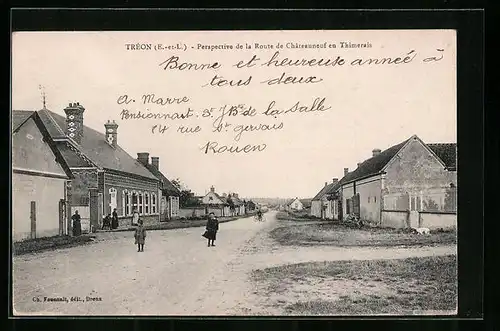 TRÉON (E.-et-L.) - Perspective de la Route de Châteauneuf en Thimerais
Bonne et heureuse année à
tous deux
A. Marre
Pensionnat St J Bte de la Salle
84 rue St gervais
Rouen
Ch. Foucault, édit., Dreux